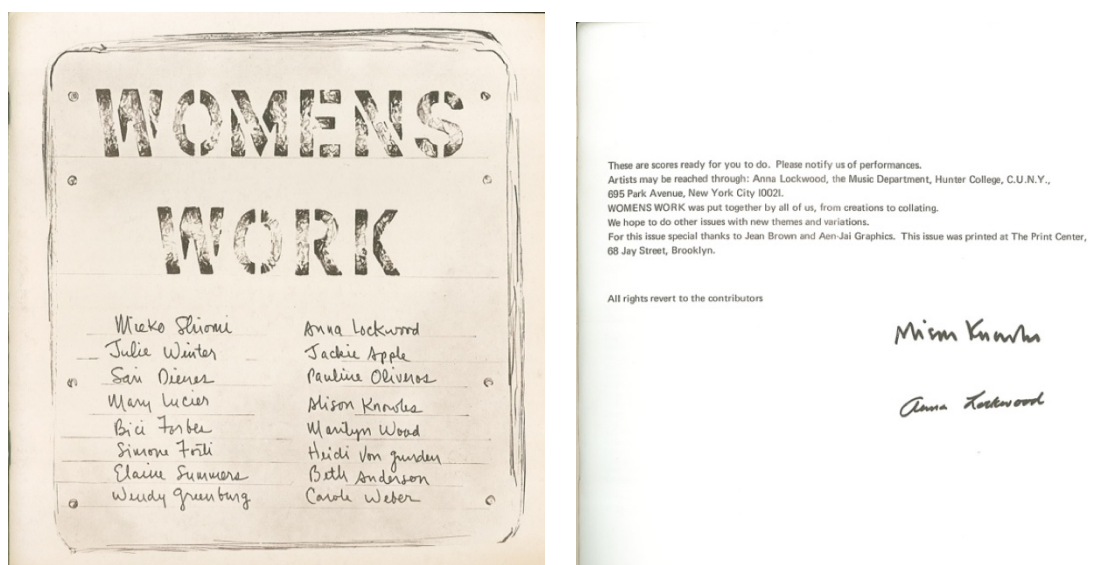 WOMENS
WORK
Mieko Shiomi
Julie Winter
Sari Dienes
Mary Lucier
Bici Forbes
Simone Forti
Elaine Summers
Wendy Greenburg
Anna Lockwood
Jackie Apple
Pauline Oliveros
Alison Knowles
Marilyn Wood
Heidi Von Gunden
Beth Anderson
Carole Weber
These are scores ready for you to do. Please notify us of performances.
Artists may be reached through: Anna Lockwood, the Music Department, Hunter College, C.U.N.Y.,
695 Park Avenue, New York City 10021.
WOMENS WORK was put together by all of us, from creations to collating.
We hope to do other issues with new themes and variations.
For this issue special thanks to Jean Brown and Aen-Jai Graphics. This issue was printed at The Print Center,
68 Jay Street, Brooklyn.
All rights revert to the contributors
Alison Knowles
Anna Lockwood